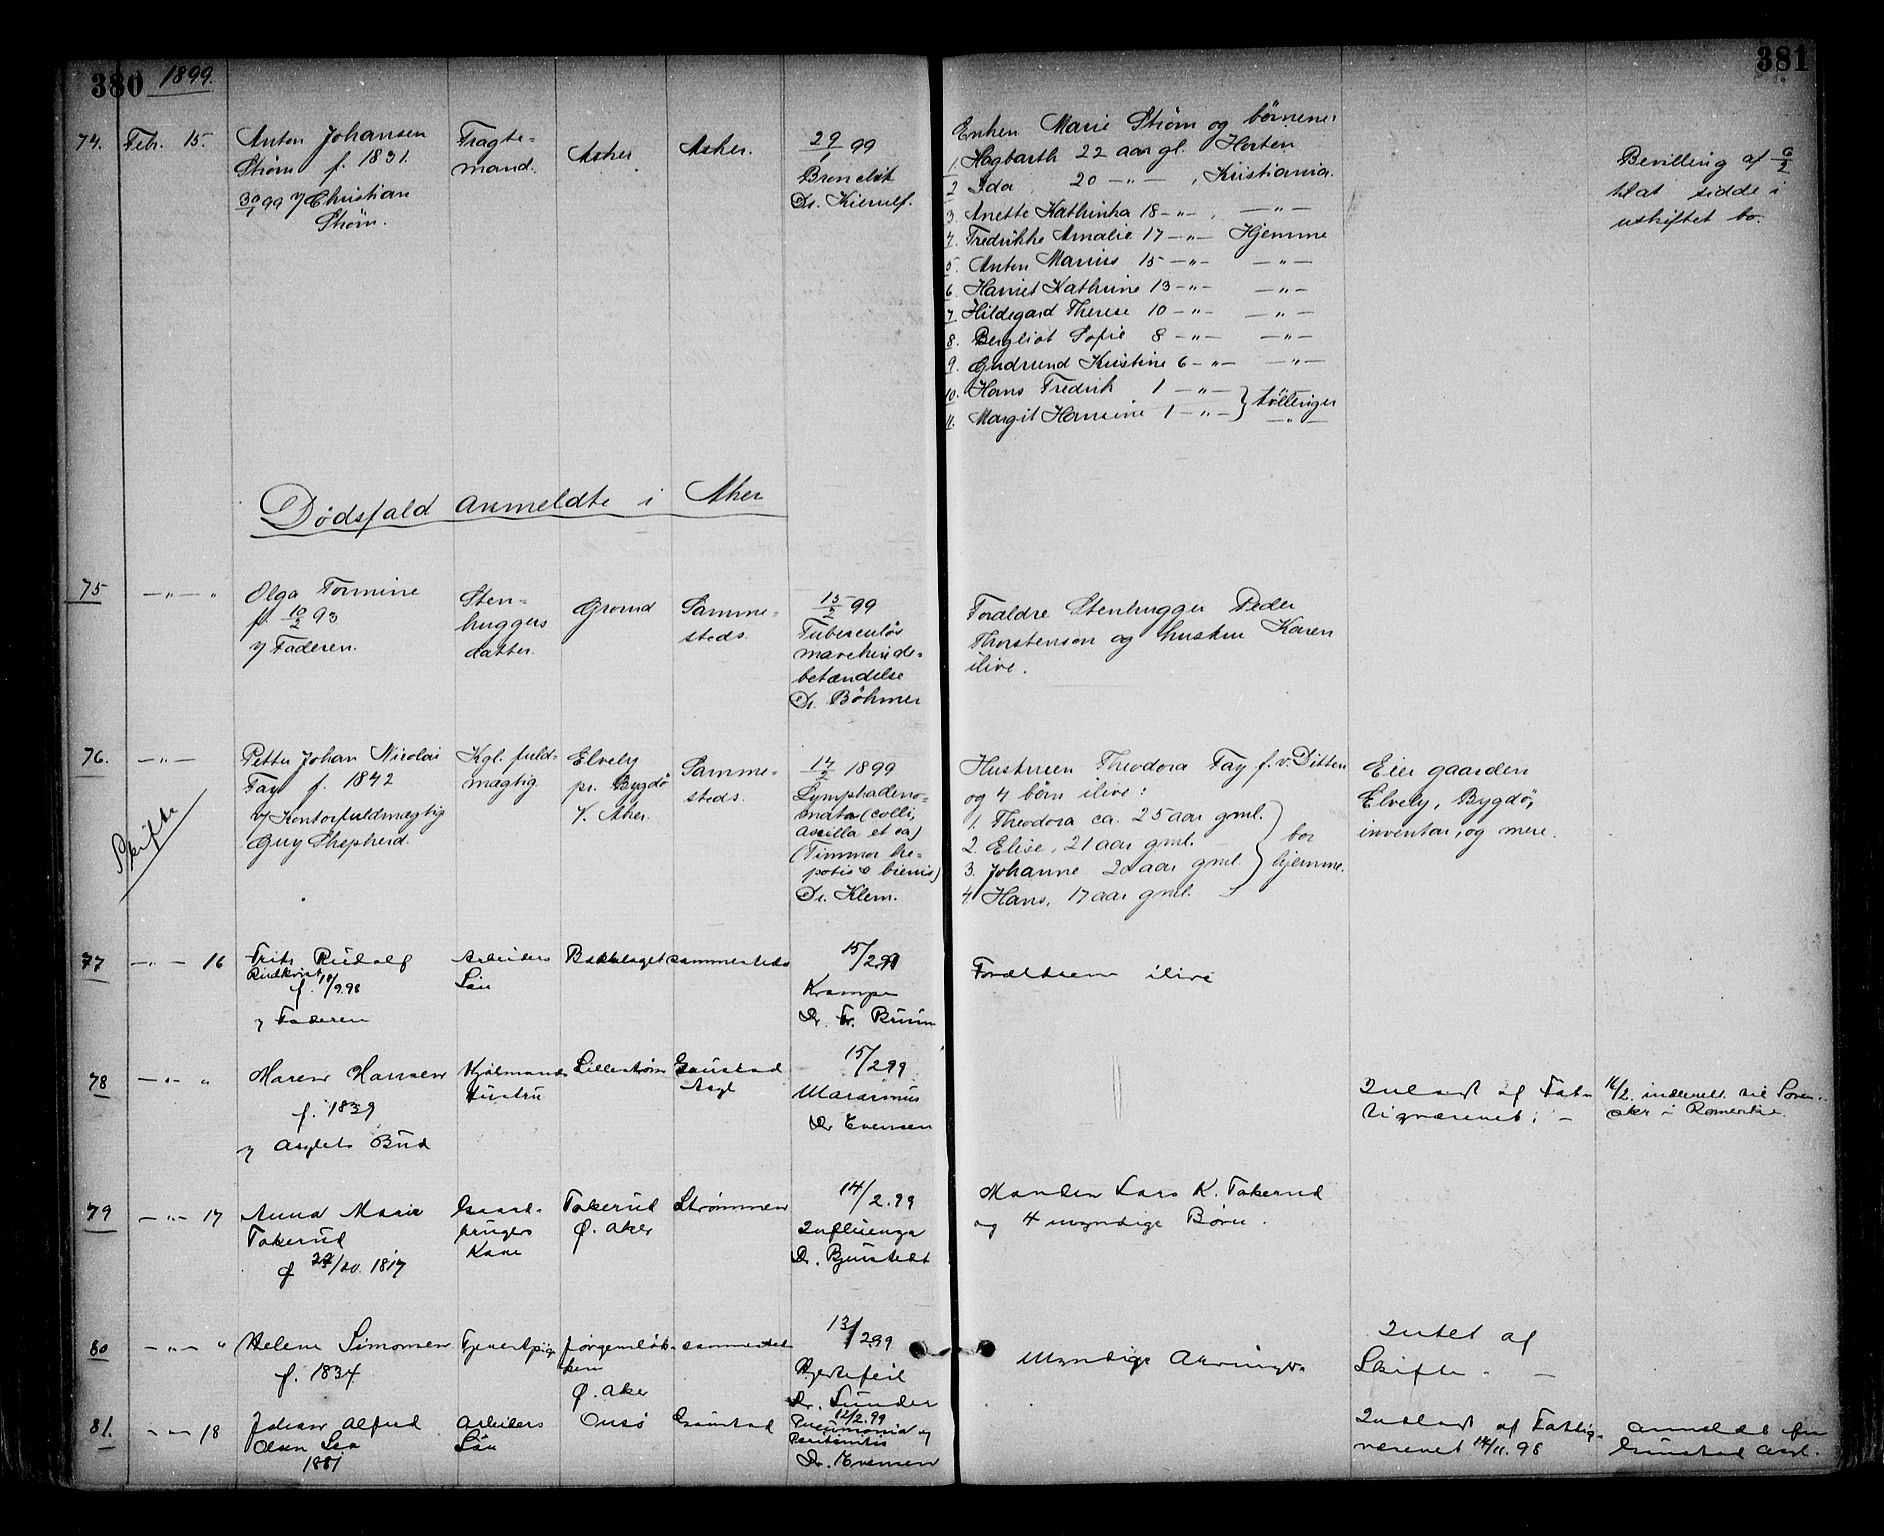 380 1899. 381
74. Febr. 15.
Anton Johansen
Strøm f. 1831.
30/1 99 v/ Christian
Strøm.
Fragte-
mand.
Asker
Asker.
29/1 99
Bronchit
Dr. Kierulf.
Enken Marie Strøm og børnene:
1. Hagbarth 22 aar gl. Horten
2 Ida 20 -"- , Kristiania.
3. Anette Kathinka 18 -"- , -"-
4. Fredrikke Amalie 17 -"- Hjemme
5. Anton Marius 15 -"- -"-
6. Harriet Kathrine 13 -"- -"-
7. Hildegard Therese 10 -"- -"-
8. Bergliot Sofie 8 -"- -"-
9. Gudrund Kristine 6 -"- -"-
10. Hans Fredrik 1 -"- } tvillinger
11. Margit Hansine 1 -"- -"-
Bevilling af 6/2
til at sidde i
uskiftet bo.
Dødsfald anmeldte i Aker
75 -"- "
Olga Tormine
f. 10/2 93
v/ Faderen.
Sten-
huggers
datter.
Grorud
Samme-
steds.
15/2 99
Tuberculøs
mavehinde-
betændelse
Dr. Bøhmer
Forældre Stenhugger Peder
Thorstenson og hustru Karen
ilive.
76. -"-
Skifte
Petter Johan Nicolai
Fay f. 1842
v/ Kontorfuldmægtig
Guy Shepherd.
Kgl. fuld-
mægtig
Elvely
pr. Bygdø
V. Aker.
Samme-
steds.
14/2 1899
Lymphadeno-
mata (colli,
axilla et ca)
(Tummor he-
patis & lienis)
Dr. Klem.
Hustruen Theodora Fay f. v. Ditten
og 4 børn ilive:
1. Theodora ca. 25 aar gml.
2. Elise, 21 aar gml.
3. Johanne 20 aar gml
4. Hans, 17 aar gml.
bor
hjemme.
Eier gaarden
Elvely, Bygdø,
inventar, og mere.
77 -"- 16
Frits Rudolf
f. 10/9.98
v/ Faderen
Arbeiders
Søn
Bækkelaget
sammesteds
15/2.99
Krampe
Dr. Fr. Bruun
Forældrene ilive
78 -"- "
Maren Hansen
f. 1839
v/ Asylets Bud
Kjølmands
Hustru
Lillestrøm
Gaustad
Asyl
15/2 99
Marasmus
Dr Evensen
Indlagt af Fat-
tigvæsenet. -
16/2. indberett. til Soren-
skr i Romerike.
79 -"- 17
Anna Marie
Tokerud
f 27/10. 1817
Gaard-
brugers
Kone
Tokerud
Ø. Aker
Strømmen
14/2.99
Influenza
Dr. Bjernstedt
Manden Lars K. Tokerud
og 4 myndige Børn.
80 -"- "
Helene Simonsen
f. 1834
Tjenestpige
Jørgensløk-
ken
Ø. Aker
sammesteds
13/2 99
Hjertefeil
Dr. Sunder
Myndige Arvinger.
Intet at
Skifte. -
81. -"- 18
Johan Alfred
Olsen Lea
1881
Arbeiders
Søn
Onsø
Gaustad
12/2.99
Pneumonia og
Peritonitis
Dr. Evensen
Indlagt af Fattig-
væsenet 14/11. 98
Anmeldt fra
Gaustad Asyl.